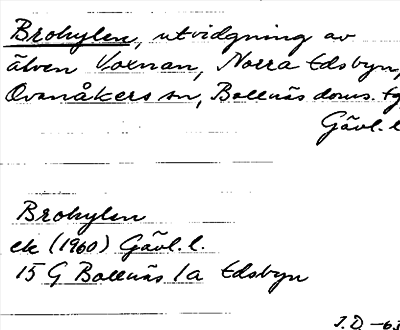 Brohylen, utvidgning av
älven Voxnan, Norra Edsbyn,
Ovanåkers sn, Bollnäs doms. tg
Gävl. l
Brohylen
ek (1960) Gävl. l.
15 G Bollnäs 1a Edsbyn
J.D. -63